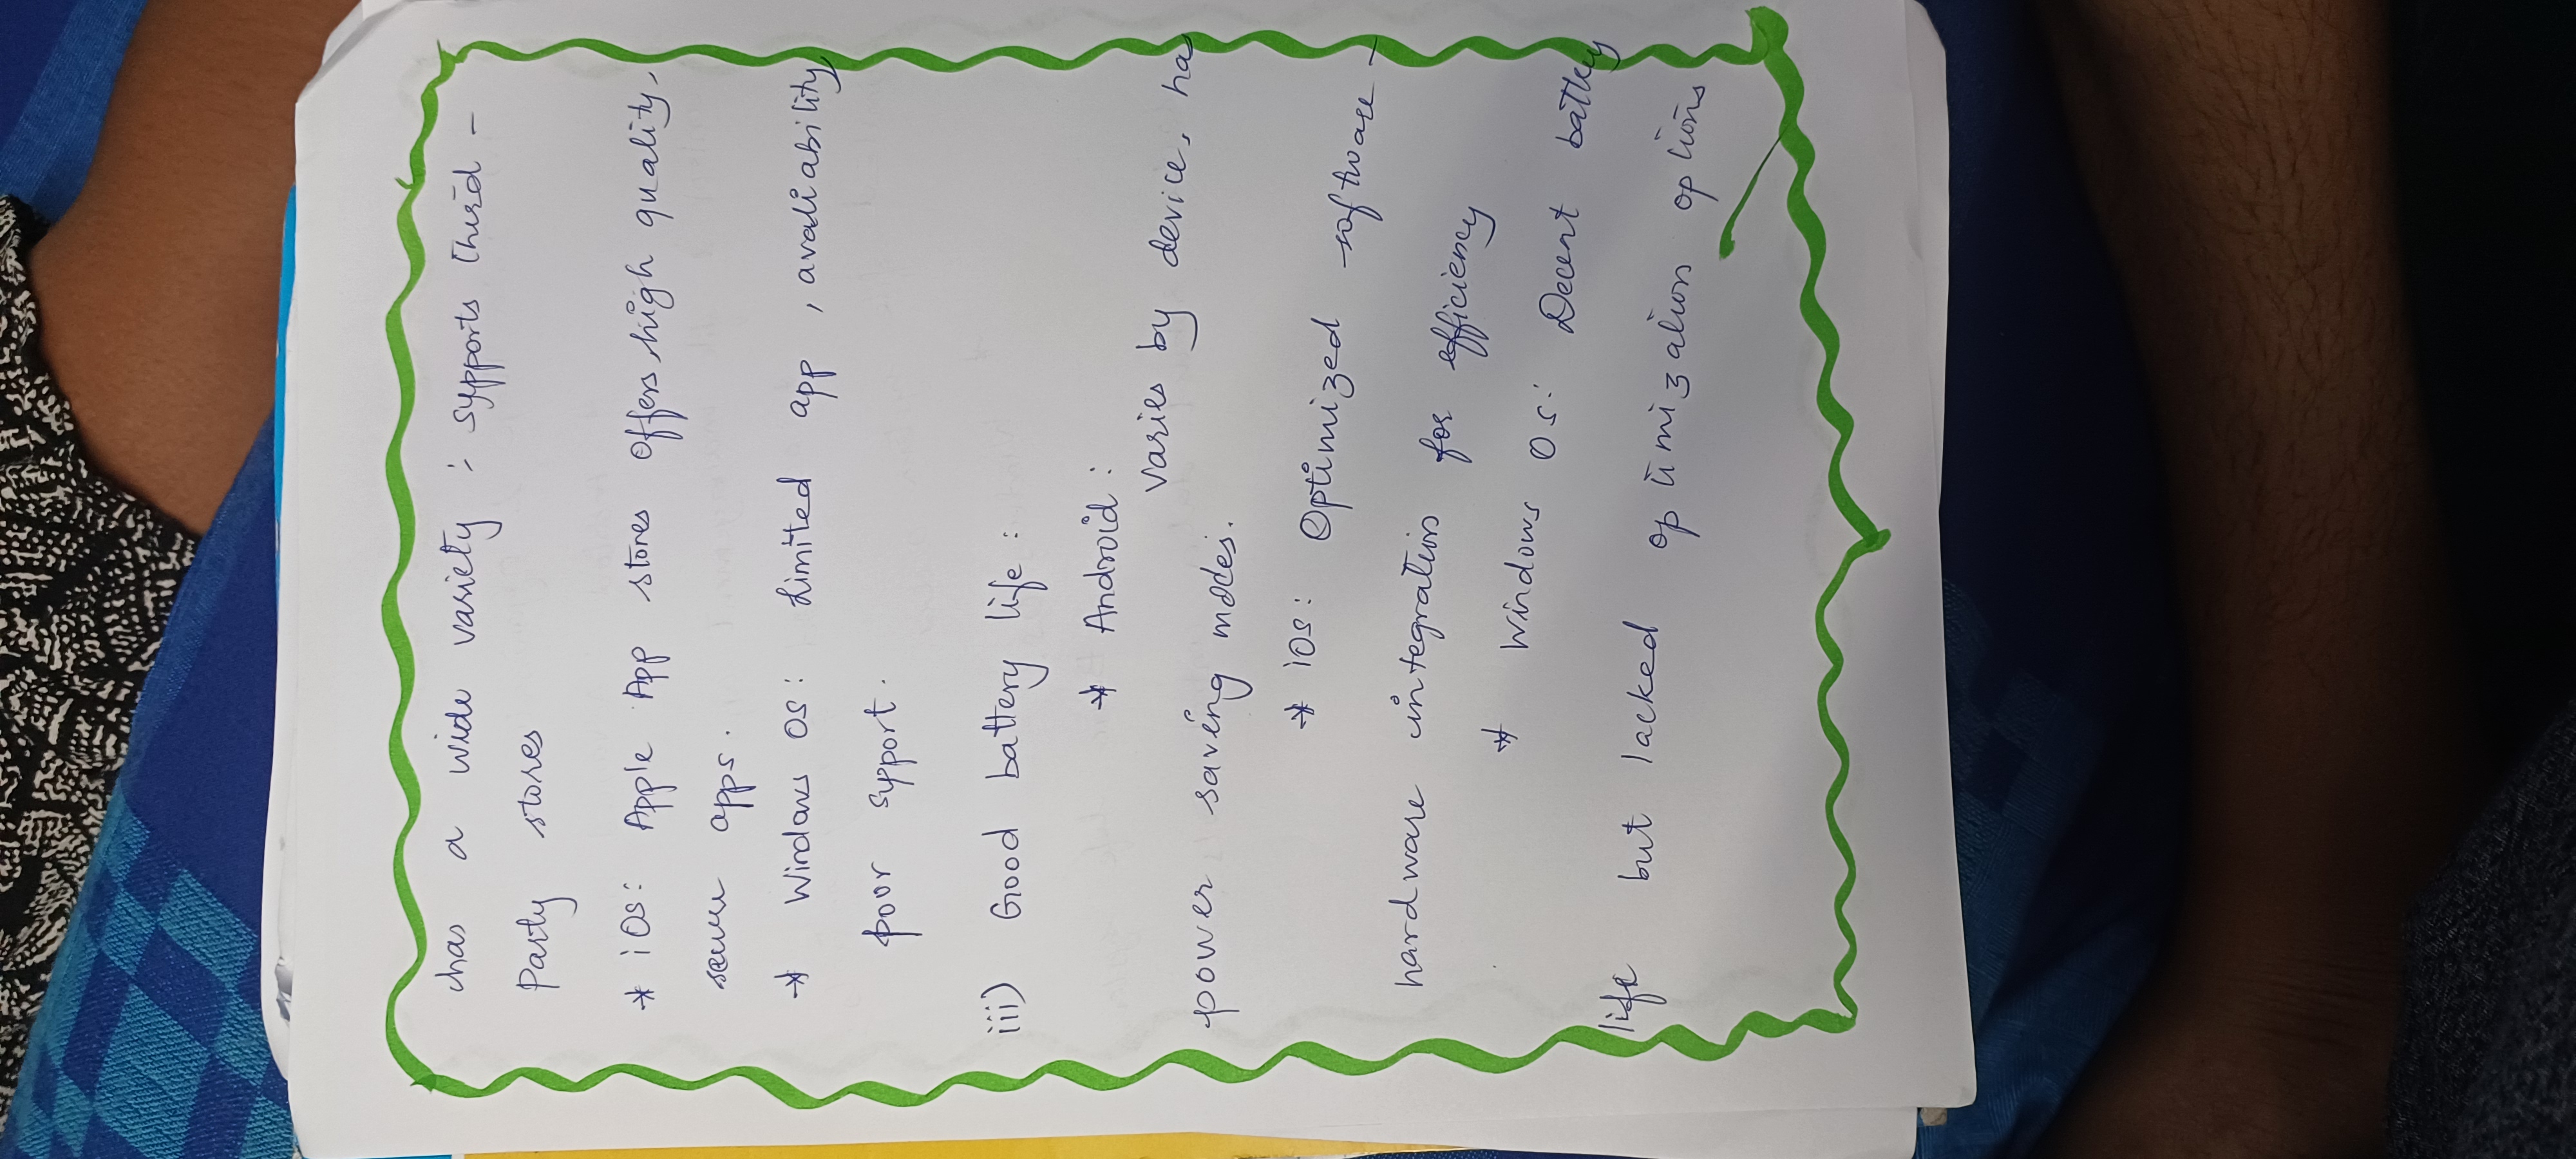 has a wide variety ; supports third -
Party stores
* iOs: Apple App stores offers, high quality,
secure apps.
* Windows OS: Limited app , avaliability,
poor support.
iii) Good battery life :
* Android :
varies by device, has
power saving modes.
* iOs: Optimized software -
hardware integration for efficiency
* Windows Os: Decent battery
life but lacked optimization options